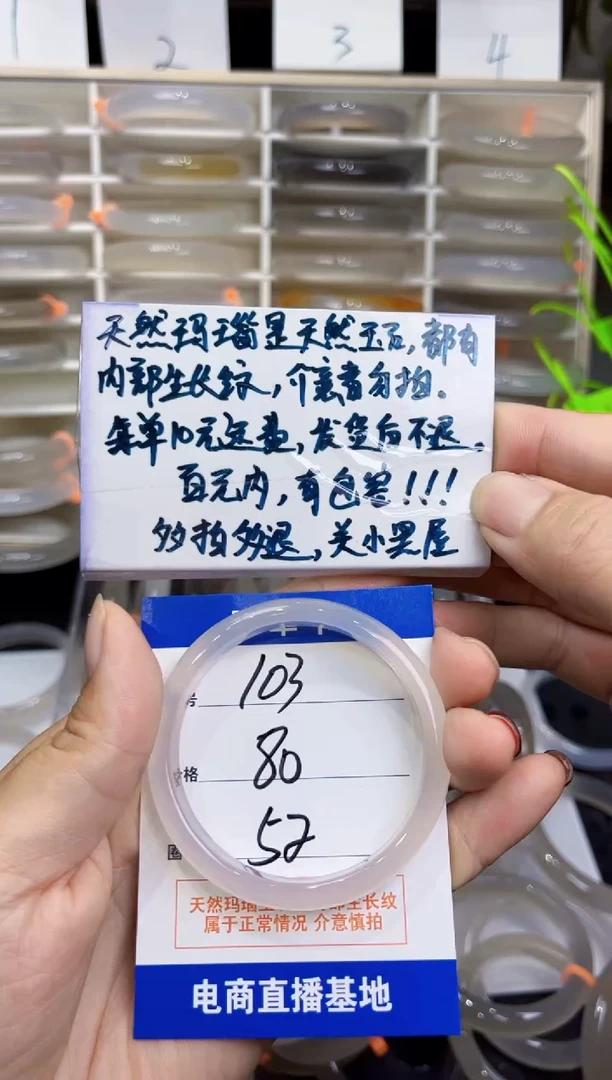 1
2
3
4
天然玛瑙是天然玉石,都有
内部生长纹,介意者勿拍.
每单10元运费,发货后不退.
百元内,有包容!!!
多拍多退,关小黑屋
号 103
格 80
圈 52
天然玛瑙 部生长纹
属于正常情况 介意慎拍
电商直播基地